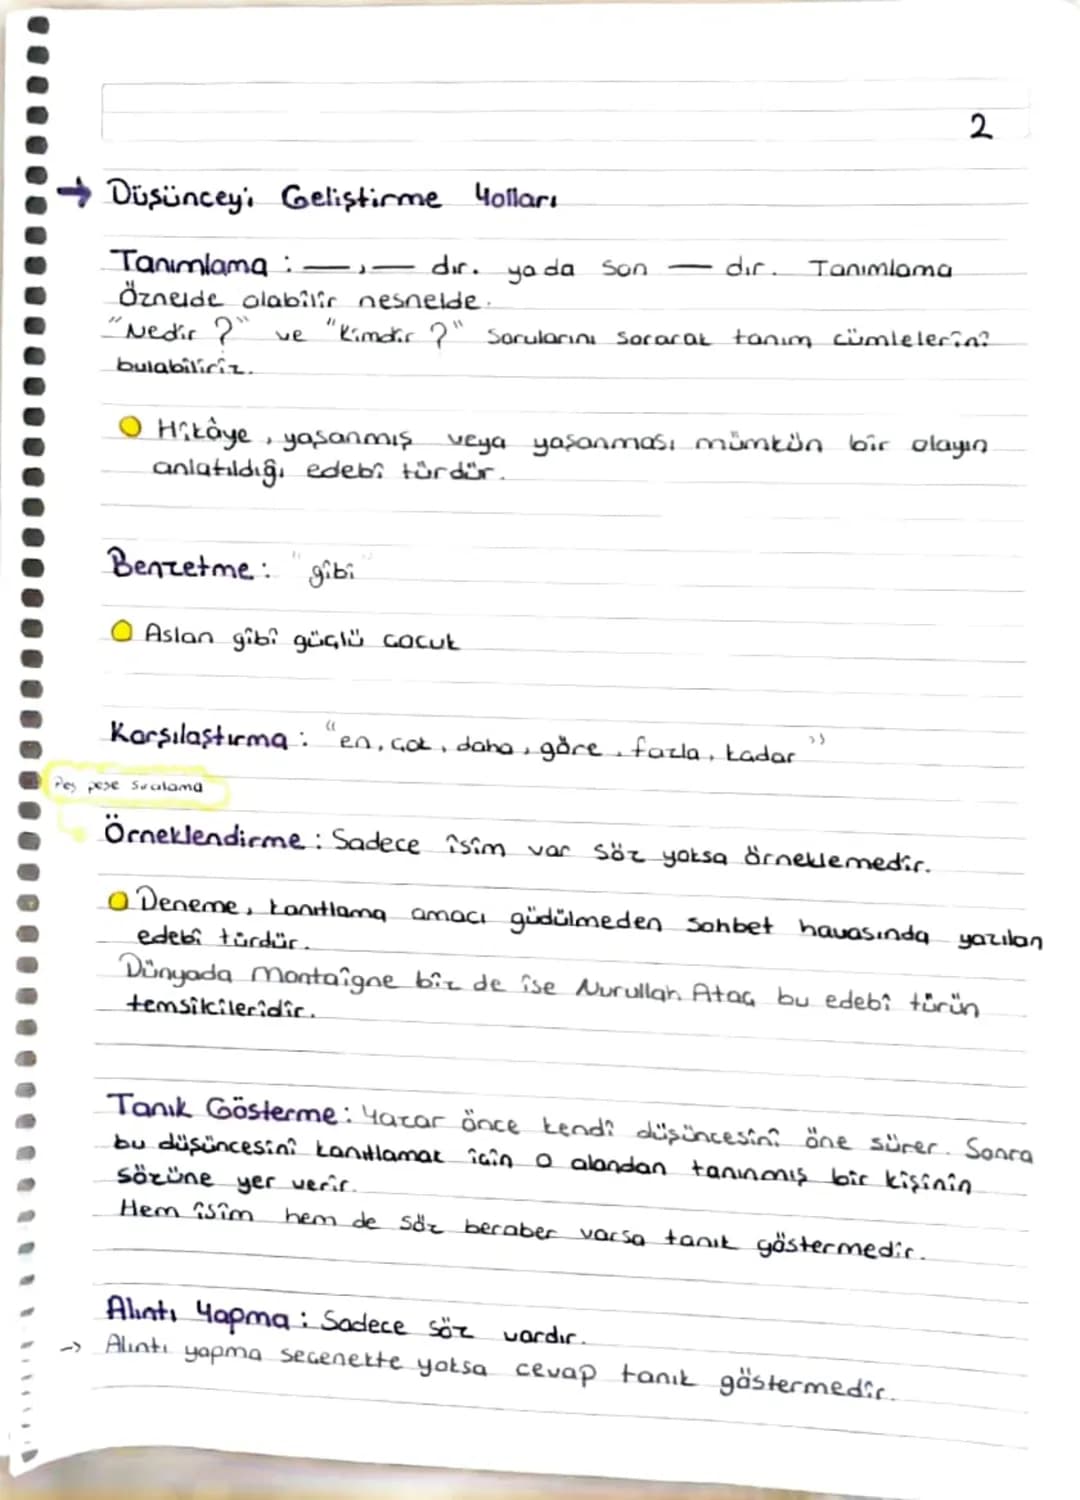 2
→ Düşünceyi Geliştirme Yolları
Tanımlama : —,— dır. ya da son — dır. Tanımlama
Öznelde olabilir nesnelde.
"Nedir ?" ve "Kimdir ?" Sorularını sorarak tanım cümlelerini
bulabiliriz.
Hikâye, yaşanmış veya yaşanması mümkün bir olayın
anlatıldığı edebî türdür.
Benzetme : "gibi"
Aslan gibi güçlü çocuk
Karşılaştırma : "en, çok, daha, göre, fazla, kadar"
Peş peşe sıralama
Örneklendirme : Sadece isim var söz yoksa örneklemedir.
Deneme, kanıtlama amacı güdülmeden sohbet havasında yazılan
edebî türdür.
Dünyada Montaigne biz de ise Nurullah Ataç bu edebî türün
temsilcileridir.
Tanık Gösterme : Yazar önce kendi düşüncesini öne sürer. Sonra
bu düşüncesini kanıtlamak için o alandan tanınmış bir kişinin
sözüne yer verir.
Hem isim hem de söz beraber varsa tanık göstermedir.
Alıntı Yapma : Sadece söz vardır.
-> Alıntı yapma seçenekte yoksa cevap tanık göstermedir.